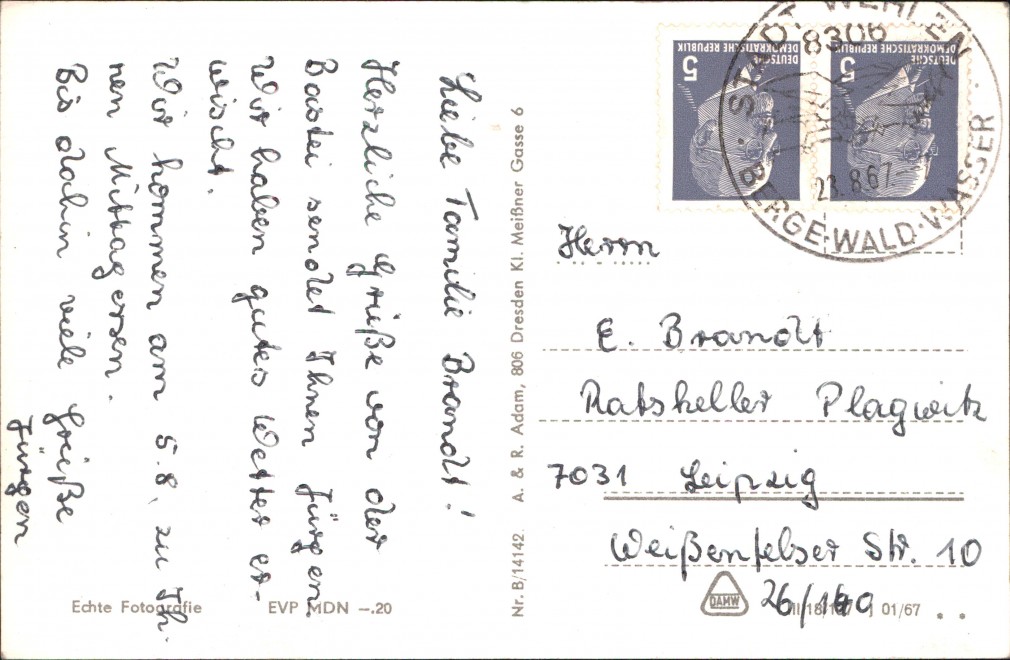 Liebe Familie Brandt!
Herzliche Grüße von der
Bastei sendet Ihnen Jürgen.
Wir haben gutes Wetter er-
wischt.
Wir kommen am 5.8. zu Ih-
nen Mittagessen.
Bis dahin viele Grüße
Jürgen
Echte Fotografie EVP MDN –.20
Nr. B/14142 A. & R. Adam, 806 Dresden Kl. Meißner Gasse 6
DEUTSCHE
DEMOKRATISCHE REPUBLIK
5
DEUTSCHE
DEMOKRATISCHE REPUBLIK
5
STADT WEHLEN
8306
23.8.67
BERGE·WALD·WASSER
Herrn
E. Brandt
Ratskeller Plagwitz
7031 Leipzig
Weißenfelser Str. 10
DAMW
01/67